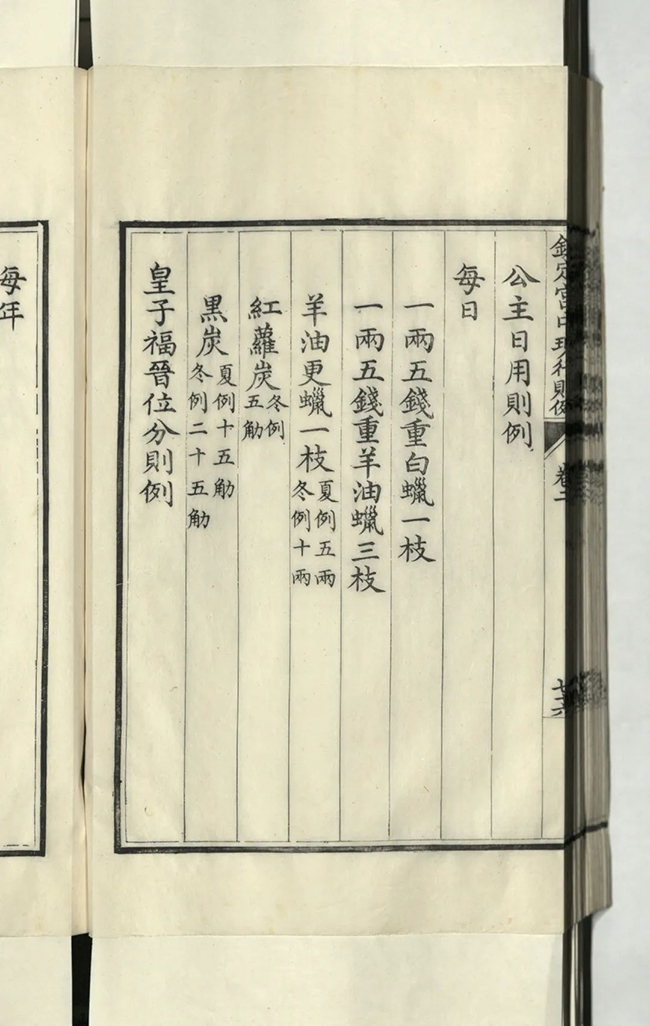 欽定宮中現行則例
卷二
公主日用則例
每日
一兩五錢重白蠟一枝
一兩五錢重羊油蠟三枝
羊油更蠟一枝夏例五兩
冬例十兩
紅蘿炭冬例
五觔
黑炭夏例十五觔
冬例二十五觔
皇子福晉位分則例
每年